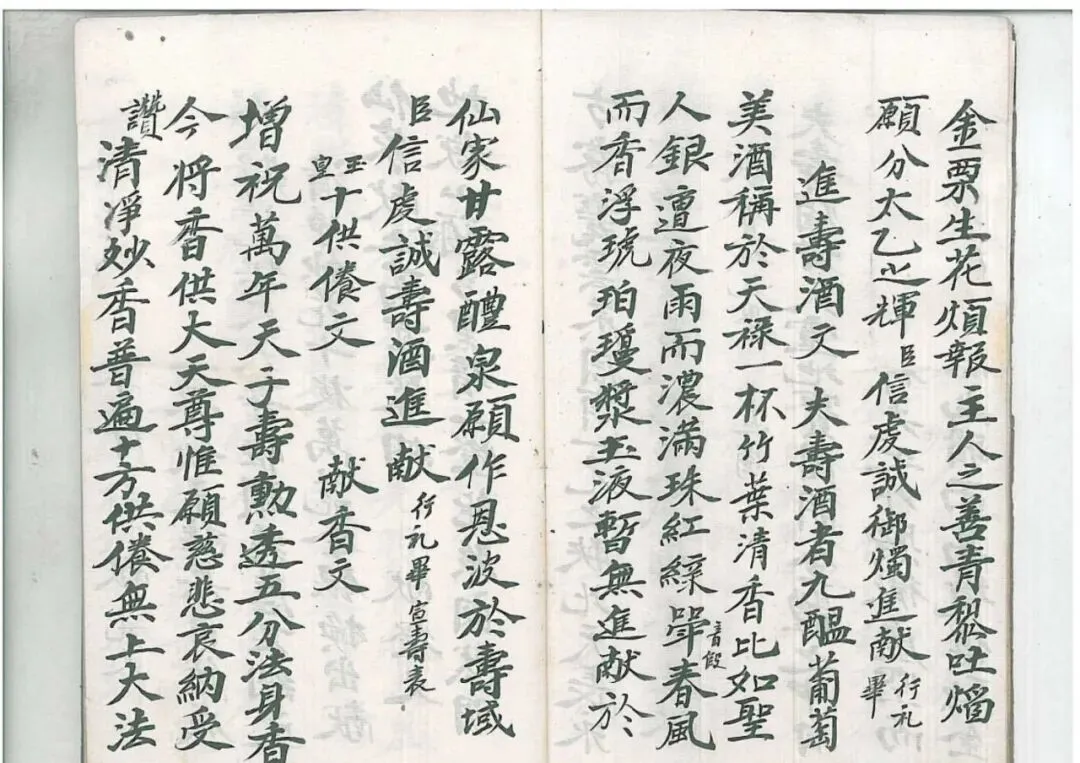 金粟生花煩報主人之善青藜吐熖
願分太乙之輝臣信虔誠御燭進献行礼畢
進壽酒文　夫壽酒者九醖葡萄
美酒稱於天禄一杯竹葉清香比如聖
人銀遭夜雨而濃滿珠紅繰斝音假春風
而香浮琥珀瓊漿玉液暫無進献於
仙家甘露醴泉願作恩波於壽域
臣信虔誠壽酒進献行礼畢宣壽表
玉皇十供養文　献香文
增祝萬年天子壽勳透五分法身香
今將香供大天尊惟願慈悲哀納受
讚清凈妙香普遍十方供養無上大法